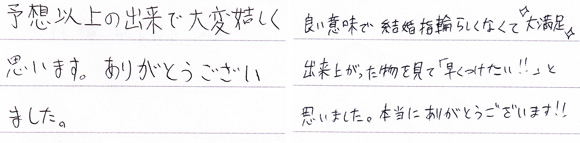 予想以上の出来で大変嬉しく
思います。ありがとうござい
ました。
良い意味で結婚指輪らしくなくて大満足
出来上がった物を見て「早くつけたい!!」と
思いました。本当にありがとうございます!!